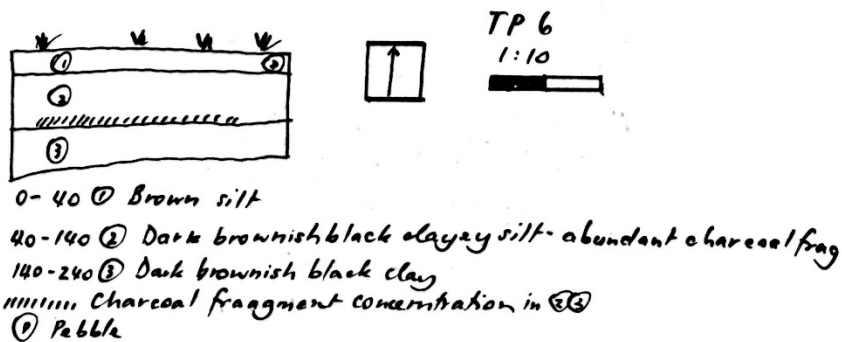 TP 6
1:10
① ⓟ
②
③
0-40 ① Brown silt
40-140 ② Dark brownish black clayey silt - abundant charcoal frag
140-240 ③ Dark brownish black clay
Charcoal fraagment concentration in ② ③
ⓟ Pebble